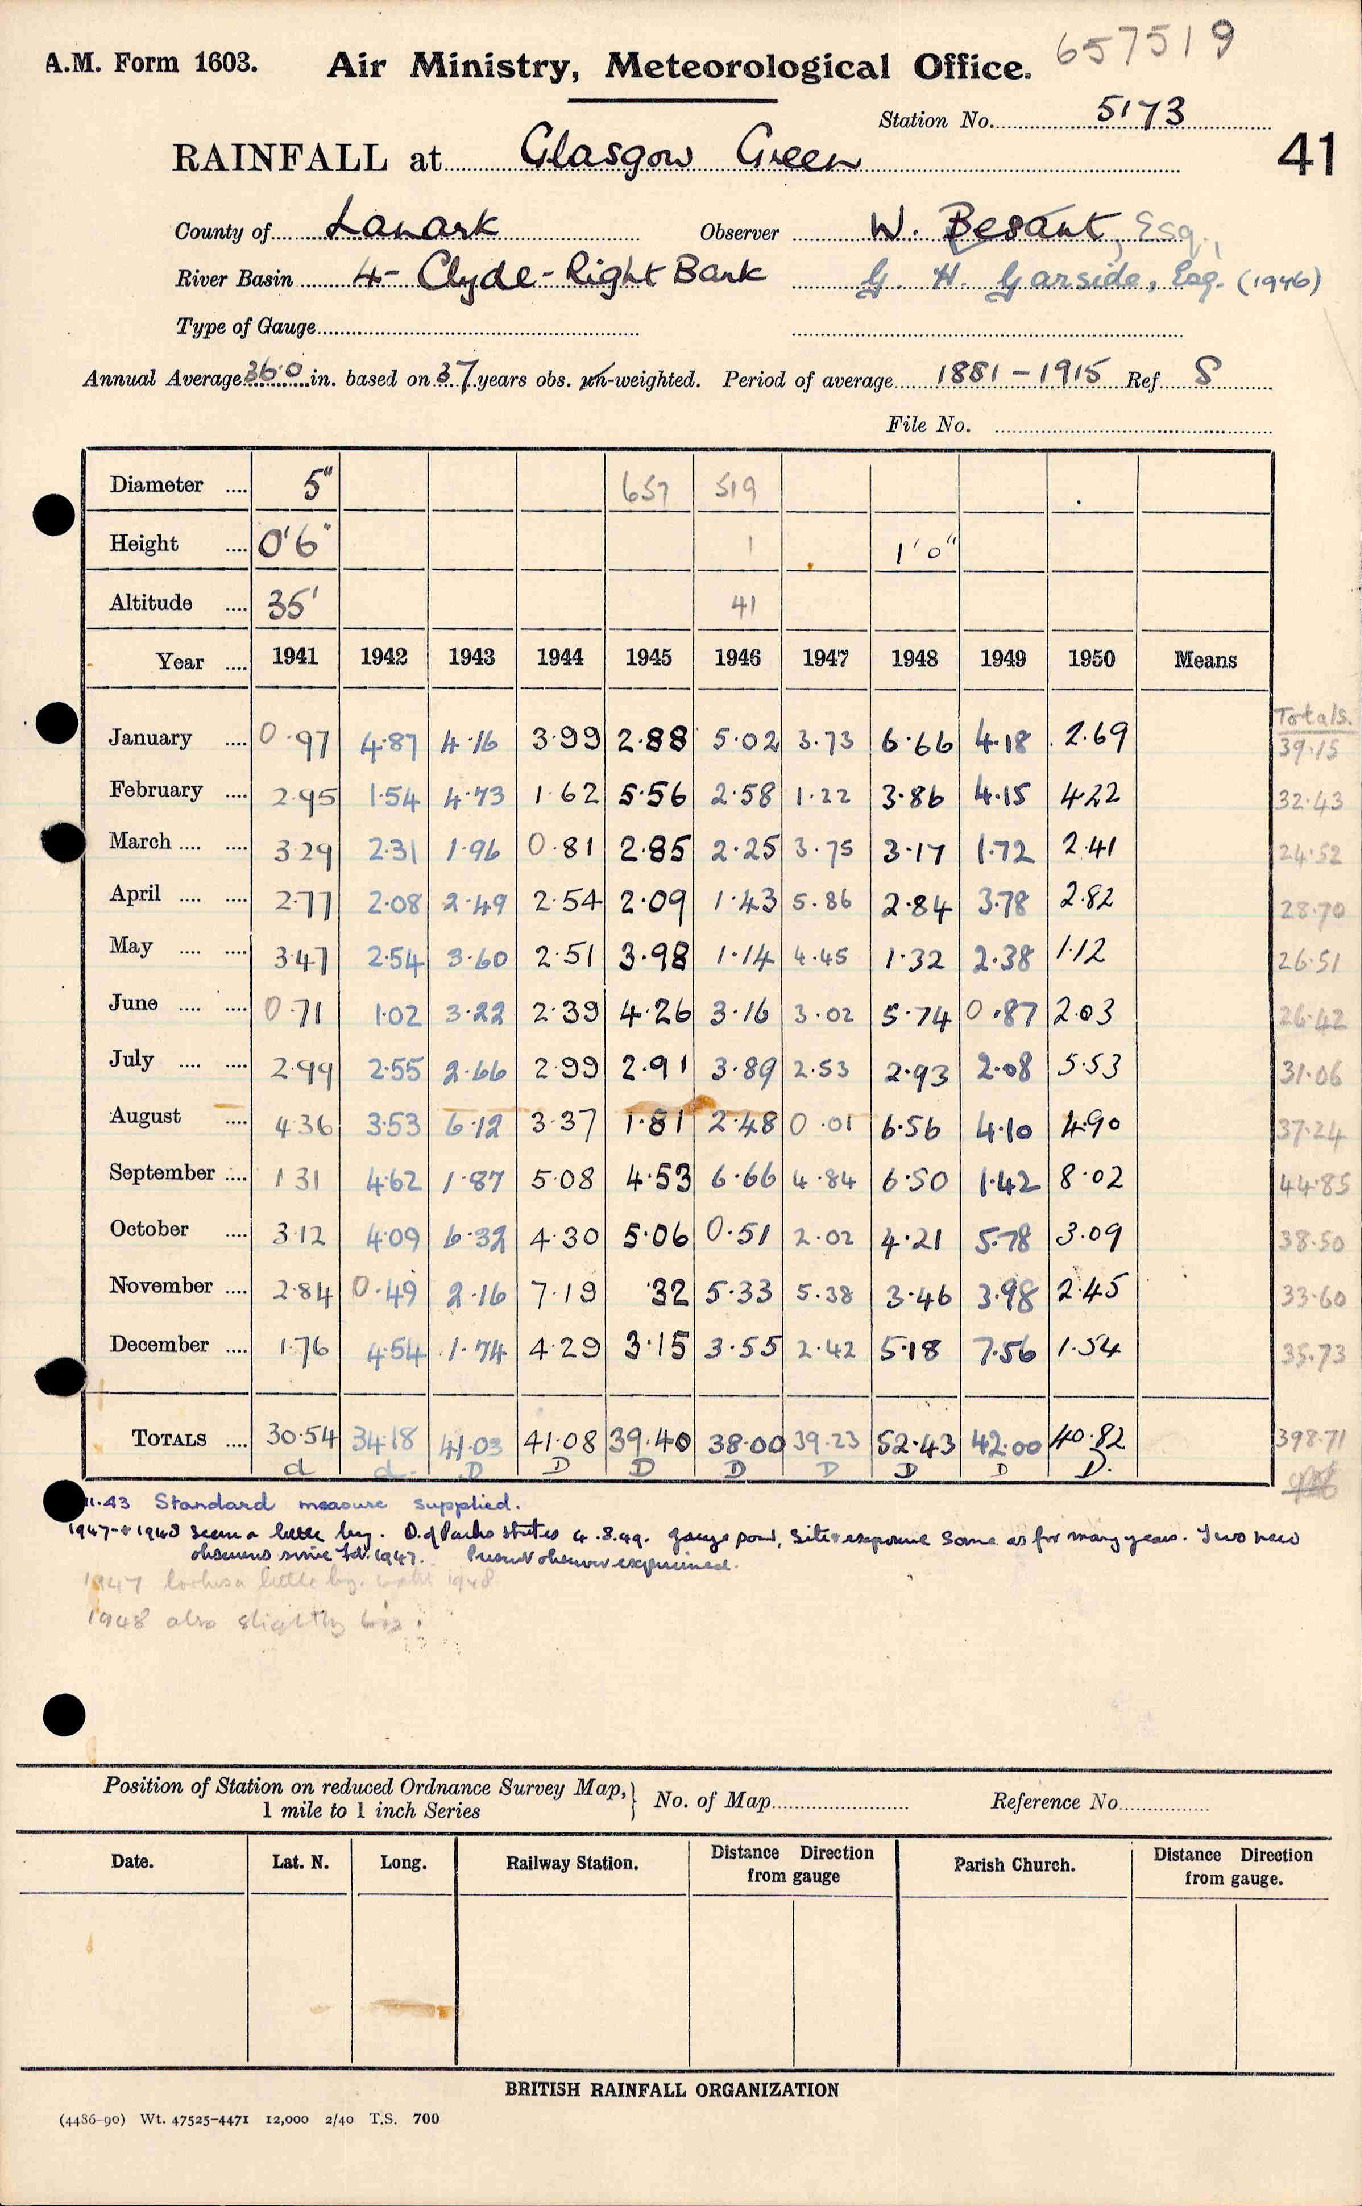 657519
A.M. Form 1603. Air Ministry, Meteorological Office.
Station No. 5173
RAINFALL at Glasgow Green 41
County of Lanark Observer W. Besant, Esq.,
River Basin 4- Clyde-Right Bank G. H. Garside, Esq. (1946)
Type of Gauge
Annual Average 36.0 in. based on 37 years obs. un-weighted. Period of average 1881-1915 Ref S
File No.
Diameter .... 5" 657 519
Height .... 0'6" 1 1'0"
Altitude .... 35' 41
Year .... 1941 1942 1943 1944 1945 1946 1947 1948 1949 1950 Means
Totals.
January .... 0.97 4.87 4.16 3.99 2.88 5.02 3.73 6.66 4.18 2.69 39.15
February .... 2.95 1.54 4.73 1.62 5.56 2.58 1.22 3.86 4.15 4.22 32.43
March .... .... 3.29 2.31 1.96 0.81 2.85 2.25 3.75 3.17 1.72 2.41 24.52
April .... .... 2.77 2.08 2.49 2.54 2.09 1.43 5.86 2.84 3.78 2.82 28.70
May .... .... 3.47 2.54 3.60 2.51 3.98 1.14 4.45 1.32 2.38 1.12 26.51
June .... .... 0.71 1.02 3.22 2.39 4.26 3.16 3.02 5.74 0.87 2.03 26.42
July .... .... 2.99 2.55 2.66 2.99 2.91 3.89 2.53 2.93 2.08 5.53 31.06
August .... 4.36 3.53 6.12 3.37 1.81 2.48 0.01 6.56 4.10 4.90 37.24
September .... 1.31 4.62 1.87 5.08 4.53 6.66 4.84 6.50 1.42 8.02 44.85
October .... 3.12 4.09 6.32 4.30 5.06 0.51 2.02 4.21 5.78 3.09 38.50
November .... 2.84 0.49 2.16 7.19 .32 5.33 5.38 3.46 3.98 2.45 33.60
December .... 1.76 4.54 1.74 4.29 3.15 3.55 2.42 5.18 7.56 1.54 35.73
TOTALS .... 30.54 34.18 41.03 41.08 39.40 38.00 39.23 52.43 42.00 40.82 398.71
d d. D D D D D D D D.
11.43 Standard measure supplied.
1947 + 1948 seem a little big. D. of Parks states 4.8.49. gauge good, site + exposure same as for many years. Two new
observers since Feb. 1947. Present observer experienced.
1947 looks a little big. 1948
1948 also slightly big.
Position of Station on reduced Ordnance Survey Map, 1 mile to 1 inch Series } No. of Map Reference No.
Date. Lat. N. Long. Railway Station. Distance Direction from gauge Parish Church. Distance Direction from gauge.
BRITISH RAINFALL ORGANIZATION
(4486-90) Wt. 47525-4471 12,000 2/40 T.S. 700